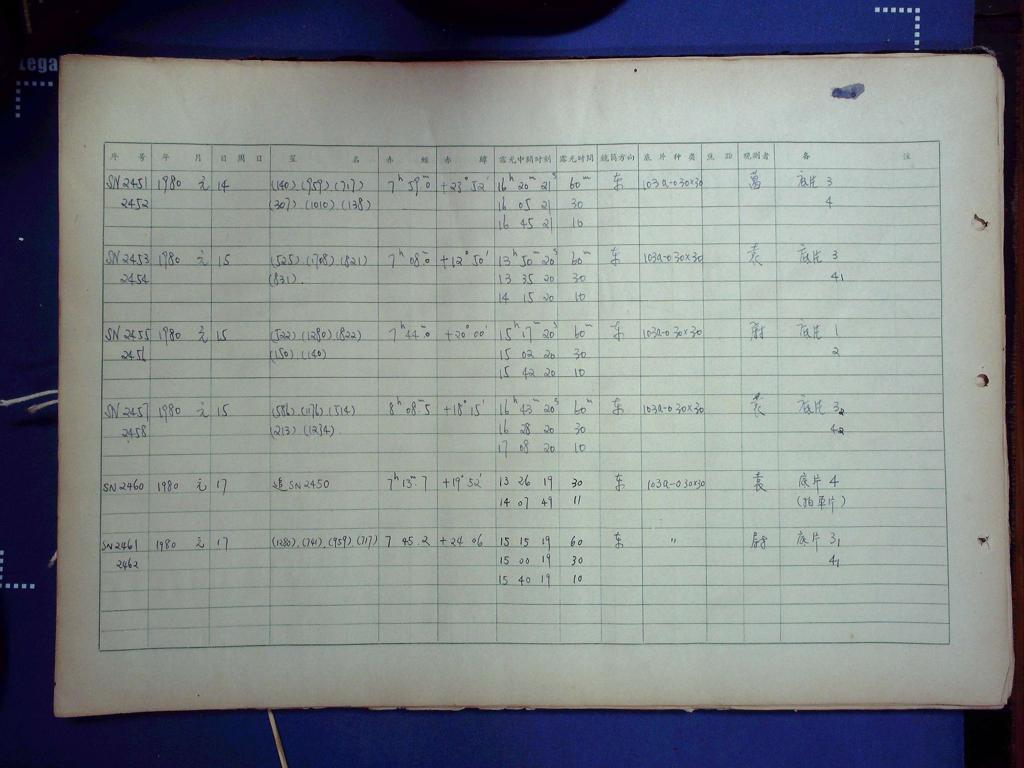 Lega
序 号 年 月 日 周 日 星 名 赤 经 赤 纬 露光中间时刻 露光时间 镜筒方向 底片种类 焦距 观测者 备 注
SN2451 1980 元 14 (140).(959).(717) 7ʰ 59ᵐ.0 +23° 52′ 16ʰ 20ᵐ 21ˢ 60ᵐ 东 103a-0 30×30 萬 底片 3
2452 (307).(1010).(138) 16 05 21 30 4
16 45 21 10
SN2453 1980 元 15 (525).(1708).(821) 7ʰ 08ᵐ.0 +12° 50′ 13ʰ 50ᵐ 20ˢ 60ᵐ 东 103a-0 30×30 袁 底片 3
2454 (831). 13 35 20 30 4₁
14 15 20 10
SN2455 1980 元 15 (522).(1280).(822) 7ʰ 44ᵐ.0 +20° 00′ 15ʰ 17ᵐ 20ˢ 60ᵐ 东 103a-0 30×30 尉 底片 1
2456 (150).(140) 15 02 20 30 2
15 42 20 10
SN2457 1980 元 15 (586).(176).(514) 8ʰ 08ᵐ.5 +18° 15′ 16ʰ 43ᵐ 20ˢ 60ᵐ 东 103a-0 30×30 袁 底片 3₂
2458 (213).(1234). 16 28 20 30 4₂
17 08 20 10
SN2460 1980 元 17 追 SN2450 7ʰ 13ᵐ.7 +19° 52′ 13 26 19 30 东 103a-0 30×30 袁 底片 4
14 07 49 11 (拍单片)
SN2461 1980 元 17 (1280).(741).(959).(717) 7 45.2 +24 06 15 15 19 60 东 〃 尉 底片 3₁
2462 15 00 19 30 4₁
15 40 19 10